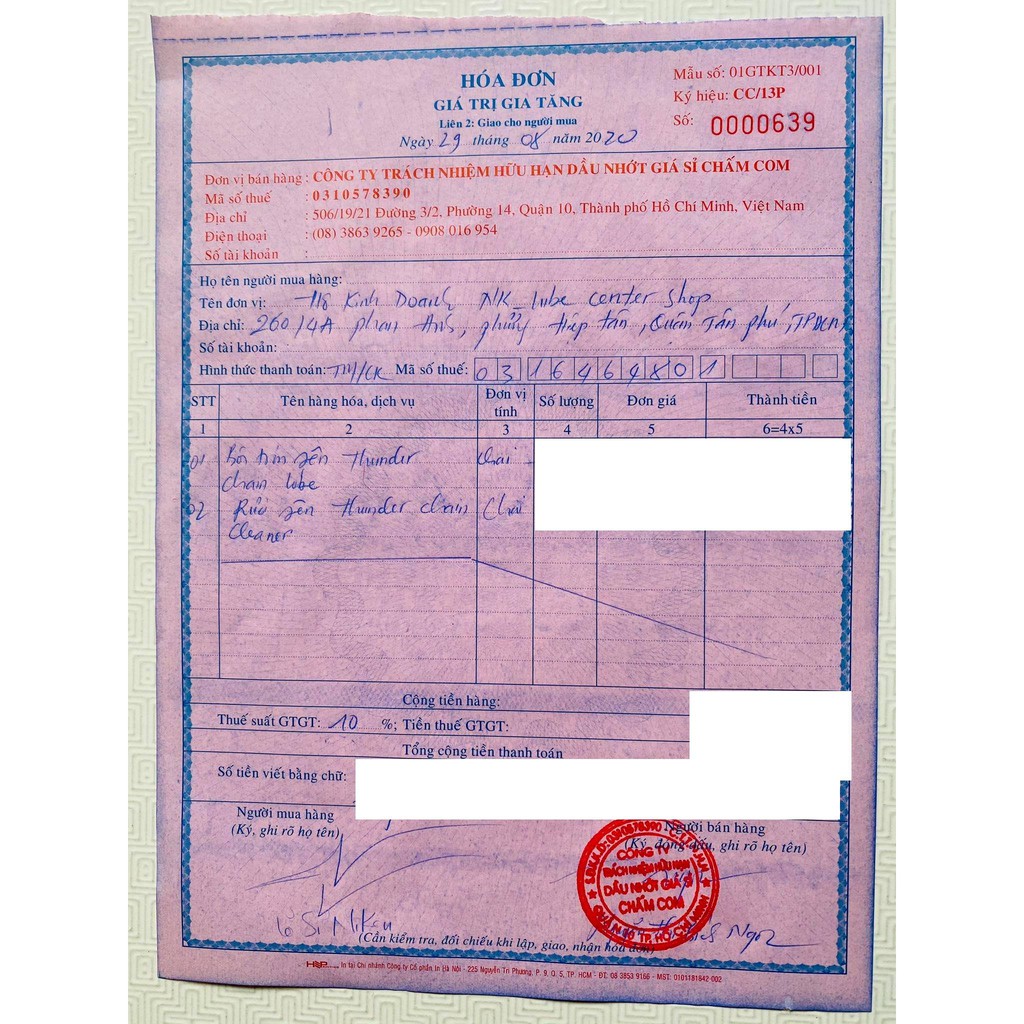 HÓA ĐƠN
GIÁ TRỊ GIA TĂNG
Liên 2: Giao cho người mua
Ngày 29 tháng 08 năm 2020
Mẫu số: 01GTKT3/001
Ký hiệu: CC/13P
Số: 0000639
Đơn vị bán hàng : CÔNG TY TRÁCH NHIỆM HỮU HẠN DẦU NHỚT GIÁ SỈ CHẤM COM
Mã số thuế : 0310578390
Địa chỉ : 506/19/21 Đường 3/2, Phường 14, Quận 10, Thành phố Hồ Chí Minh, Việt Nam
Điện thoại : (08) 3863 9265 - 0908 016 954
Số tài khoản :
Họ tên người mua hàng:
Tên đơn vị: Kinh Doanh NK lube center shop
Địa chỉ: 260/4A phan Anh, phường Hiệp Tân, Quận Tân phú, TPHCM
Số tài khoản:
Hình thức thanh toán: TM/CK Mã số thuế: 0316464801
STT Tên hàng hóa, dịch vụ Đơn vị tính Số lượng Đơn giá Thành tiền
1 2 3 4 5 6=4x5
01 sên Thunder chai
chain lube
02 Rửa sên thunder chain Chai
cleaner
Cộng tiền hàng:
Thuế suất GTGT: 10 %; Tiền thuế GTGT:
Tổng cộng tiền thanh toán
Số tiền viết bằng chữ:
Người mua hàng
(Ký, ghi rõ họ tên)
Người bán hàng
(Ký, đóng dấu, ghi rõ họ tên)
0310578390
CÔNG TY
TRÁCH NHIỆM HỮU HẠN
DẦU NHỚT GIÁ SỈ
CHẤM COM
QUẬN 10 TP. HỒ CHÍ MINH
Ngọc
(Cần kiểm tra, đối chiếu khi lập, giao, nhận hóa đơn)
In tại Chi nhánh Công ty Cổ phần In Hà Nội - 225 Nguyễn Tri Phương, P. 9, Q. 5, TP. HCM - ĐT: 08 3853 9166 - MST: 0101181842-002